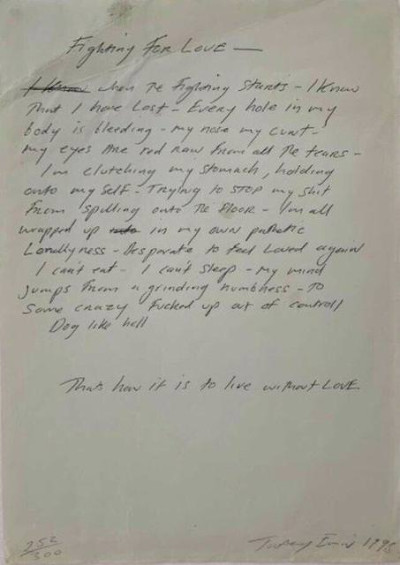 Fighting FOR LOVE —
I know when The Fighting STarts - I know
That I have Lost - Every hole in my
body is bleeding - my nose my cunt -
my eyes Are red raw from all The tears -
I'm clutching my stomach, holding
onto my self - Trying to STOP my shit
from spilling onto The floor - I'm all
wrapped up in my own pathetic
Lonellyness - Desparate to feel Loved again
I can't eat - I can't sleep - my mind
jumps from a grinding numbness - to
Some crazy Fucked up out of controll
Dog like hell
Thats how it is to live without LOVE
253/300 Tracey Emin 1998